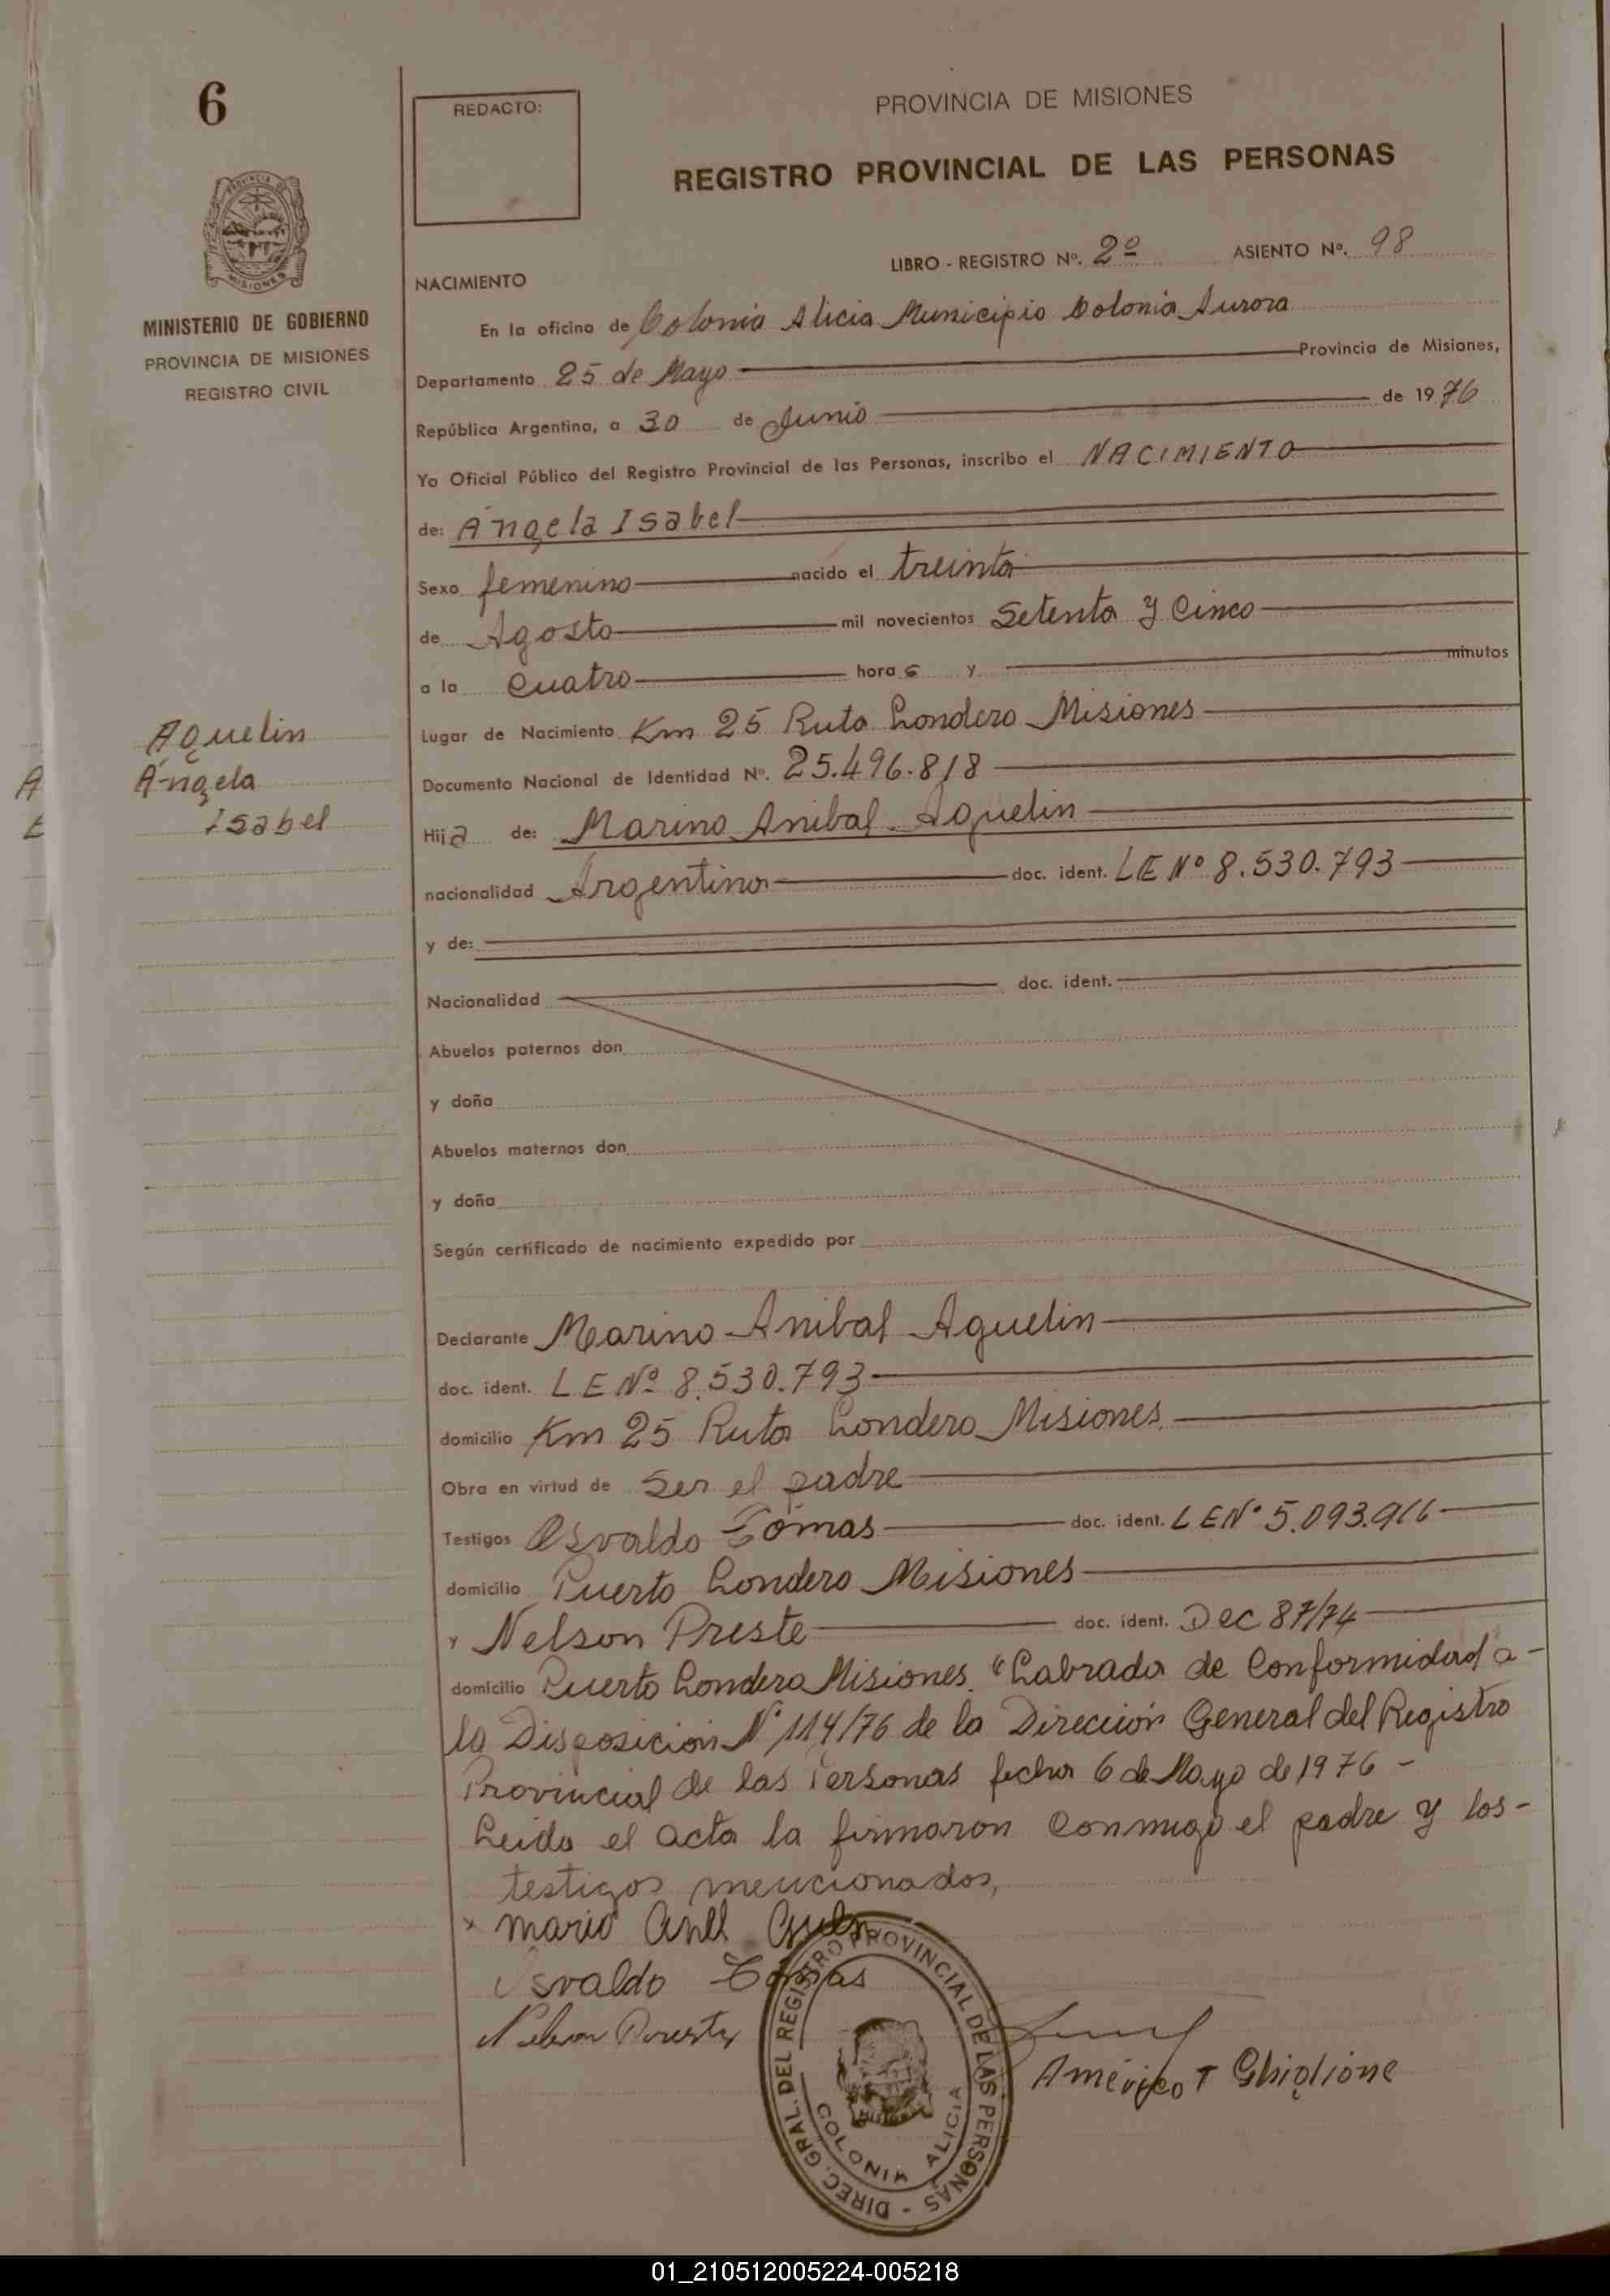 6
REDACTO:
PROVINCIA DE MISIONES
REGISTRO PROVINCIAL DE LAS PERSONAS
MINISTERIO DE GOBIERNO
PROVINCIA DE MISIONES
REGISTRO CIVIL
LIBRO - REGISTRO Nº. 2º ASIENTO Nº. 98
NACIMIENTO
En la oficina de Colonia Alicia Municipio Colonia Aurora
Departamento 25 de Mayo Provincia de Misiones,
República Argentina, a 30 de Junio de 1976
Yo Oficial Público del Registro Provincial de las Personas, inscribo el NACIMIENTO
de: Ángela Isabel
Sexo femenino nacido el treinta
de Agosto mil novecientos Setenta y Cinco
a la Cuatro horas y minutos
Aquelin
Ángela
Isabel
Lugar de Nacimiento Km 25 Ruta Londero Misiones
Documento Nacional de Identidad Nº. 25.496.818
Hija de: Marino Anibal Aquelin
nacionalidad Argentina doc. ident. LE Nº 8.530.793
y de:
Nacionalidad doc. ident.
Abuelos paternos don
y doña
Abuelos maternos don
y doña
Según certificado de nacimiento expedido por
Declarante Marino Anibal Aquelin
doc. ident. LE Nº 8.530.793
domicilio Km 25 Ruta Londero Misiones
Obra en virtud de Ser el padre
Testigos Osvaldo Tómas doc. ident. LE Nº 5.093.916
domicilio Puerto Londero Misiones
y Nelson Preste doc. ident. Dec 87/74
domicilio Puerto Londero Misiones. "Labrada de Conformidad a-
la Disposición Nº 114/76 de la Dirección General del Registro
Provincial de las Personas fecha 6 de Mayo de 1976 -
Leida el acta la firmaron conmigo el padre y los-
testigos mencionados,
x mario
Osvaldo Tómas
Nelson
Américo T Ghiglione
DIREC. GRAL. DEL REGISTRO PROVINCIAL DE LAS PERSONAS -
COLONIA ALICIA
MISIONES
01_210512005224-005218